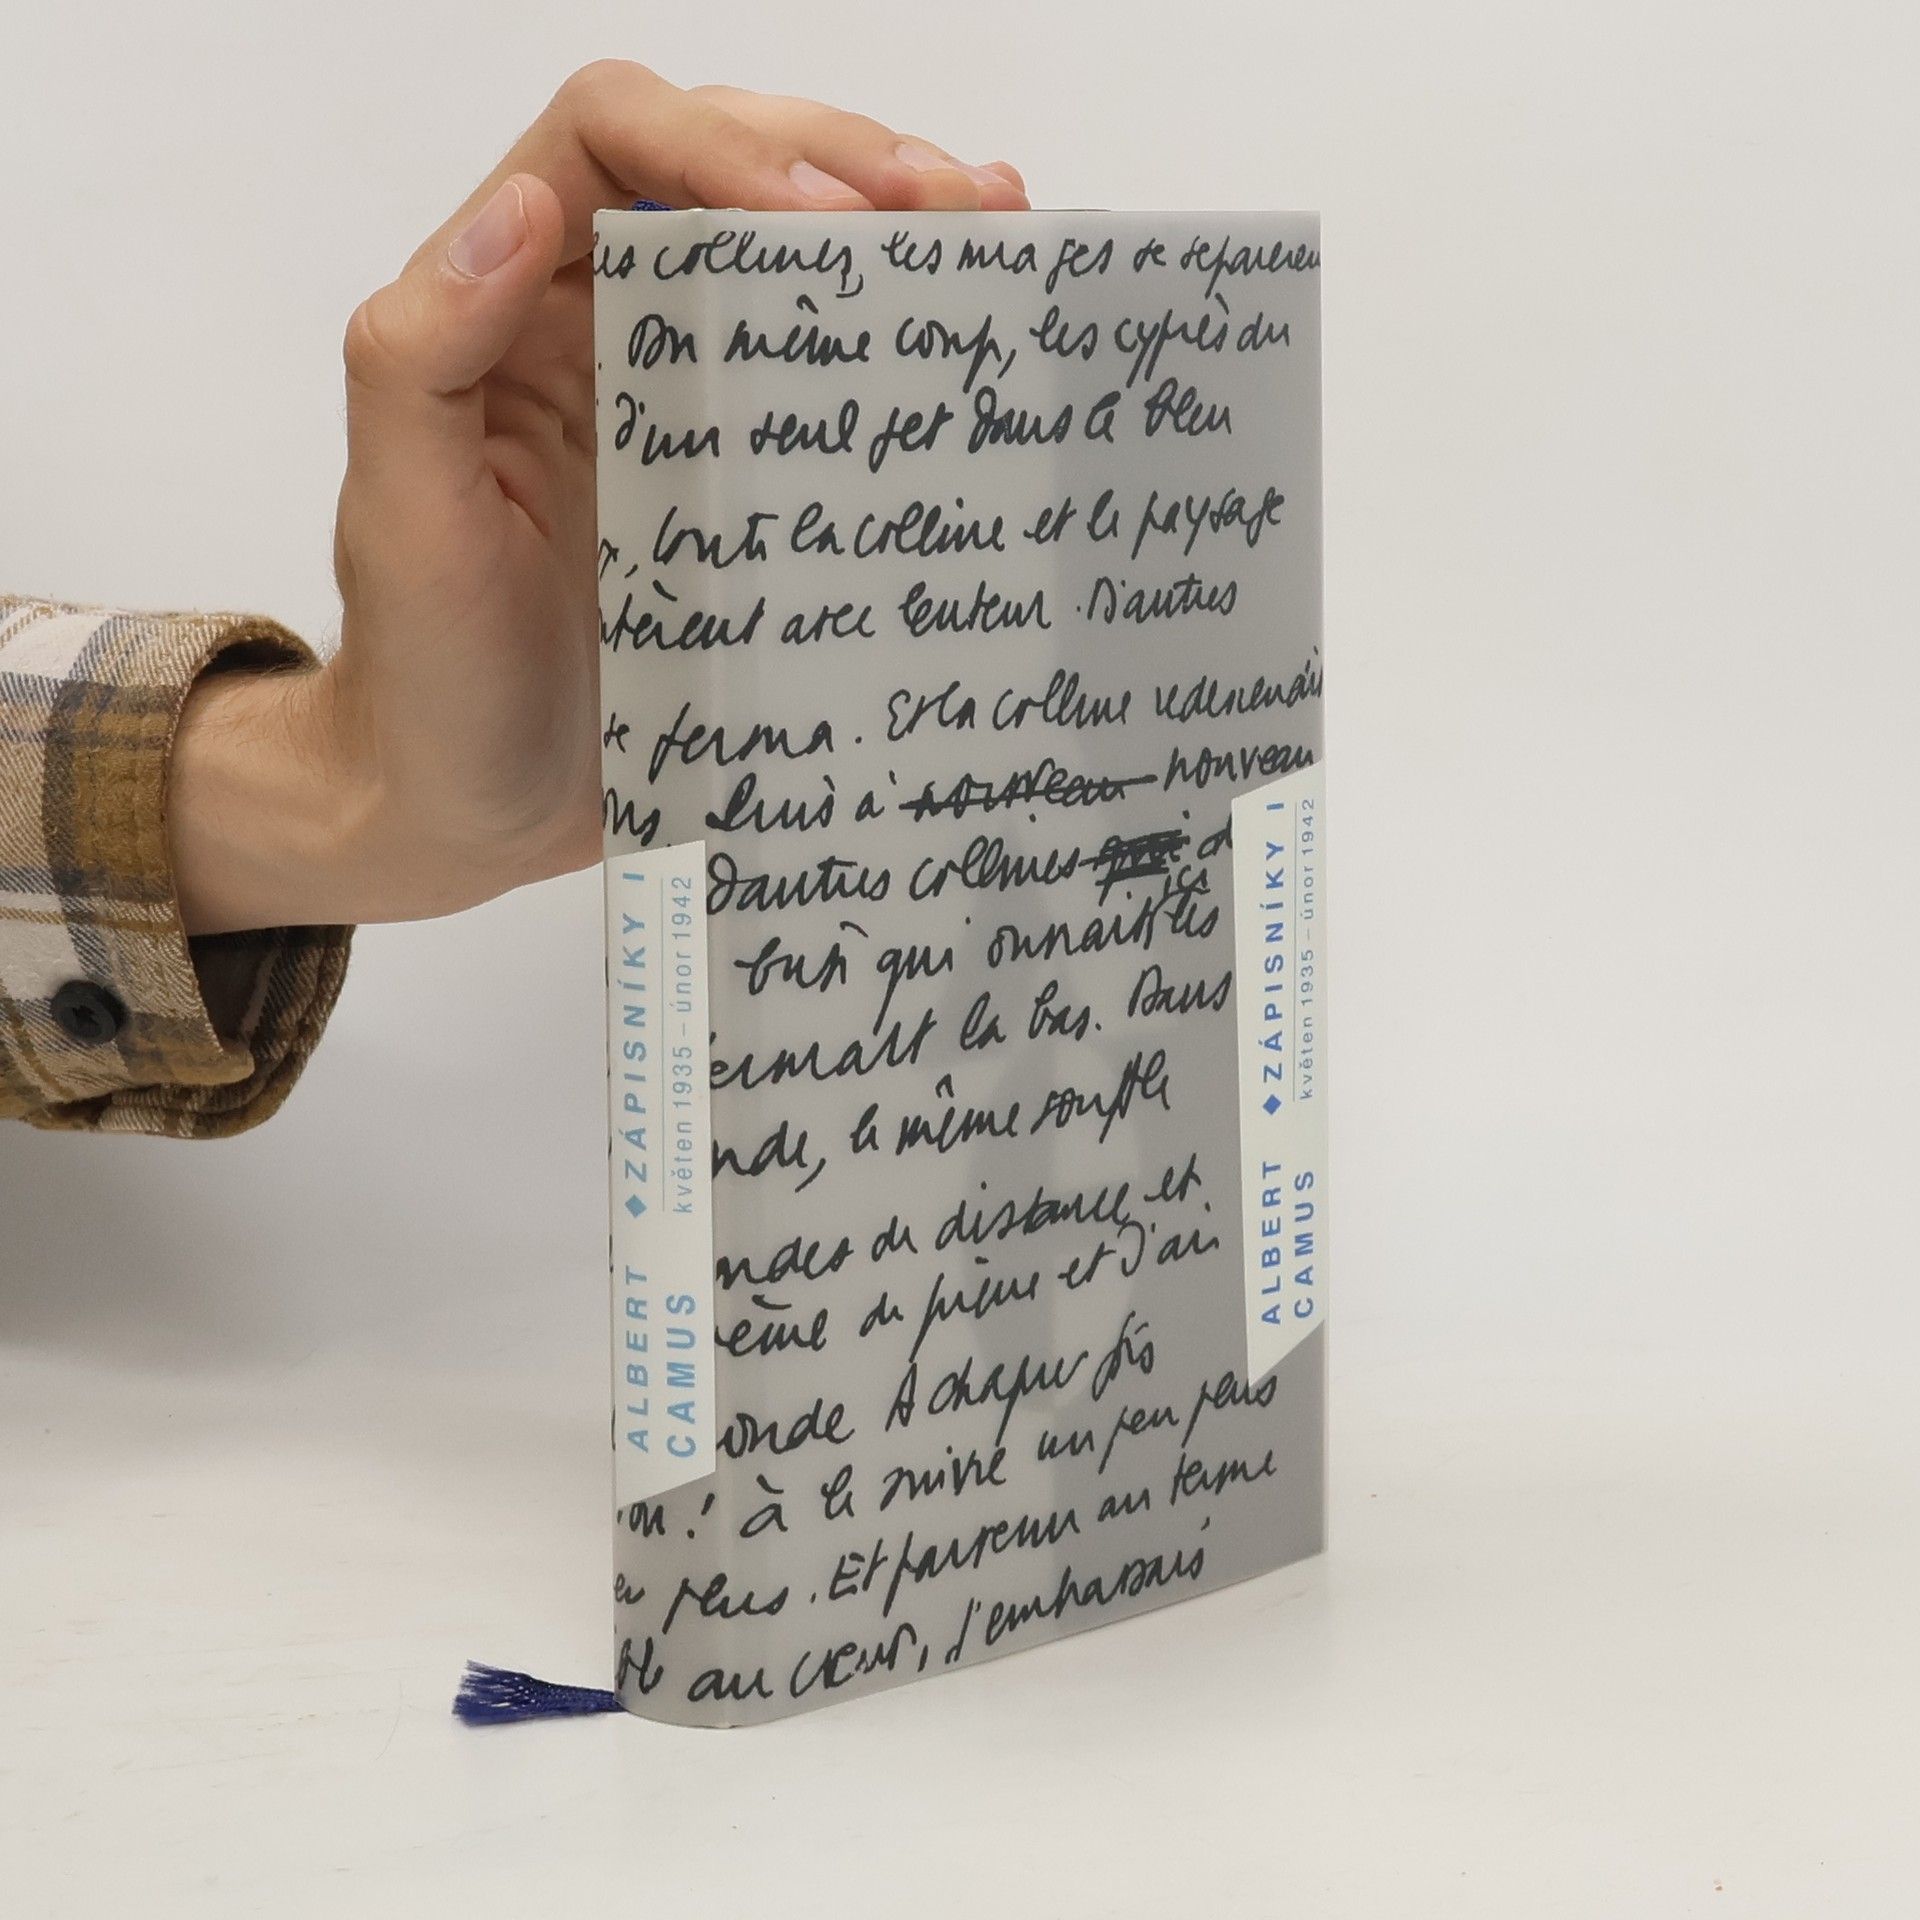 les collines, les nuages se séparèren
. Du même coup, les cyprès du
d'un seul jet dans le bleu
, toute la colline et le paysage
ntèrent avec lenteur. D'autres
se ferma. Et la colline redescendai
ons. Puis à nouveau nouveau
D'autres collines
ici
qui les
là bas. Dans
nde, le même souffle
ndes de distance et
de pierre et d'air
onde A chaque fois
on! à le suivre un peu plus
plus. Et parvenu au terme
au cœur, j'embrassais
ALBERT
CAMUS
◆ZÁPISNÍKY I
květen 1935 – únor 1942
ALBERT
CAMUS
◆ZÁPISNÍKY I
květen 1935 – únor 1942